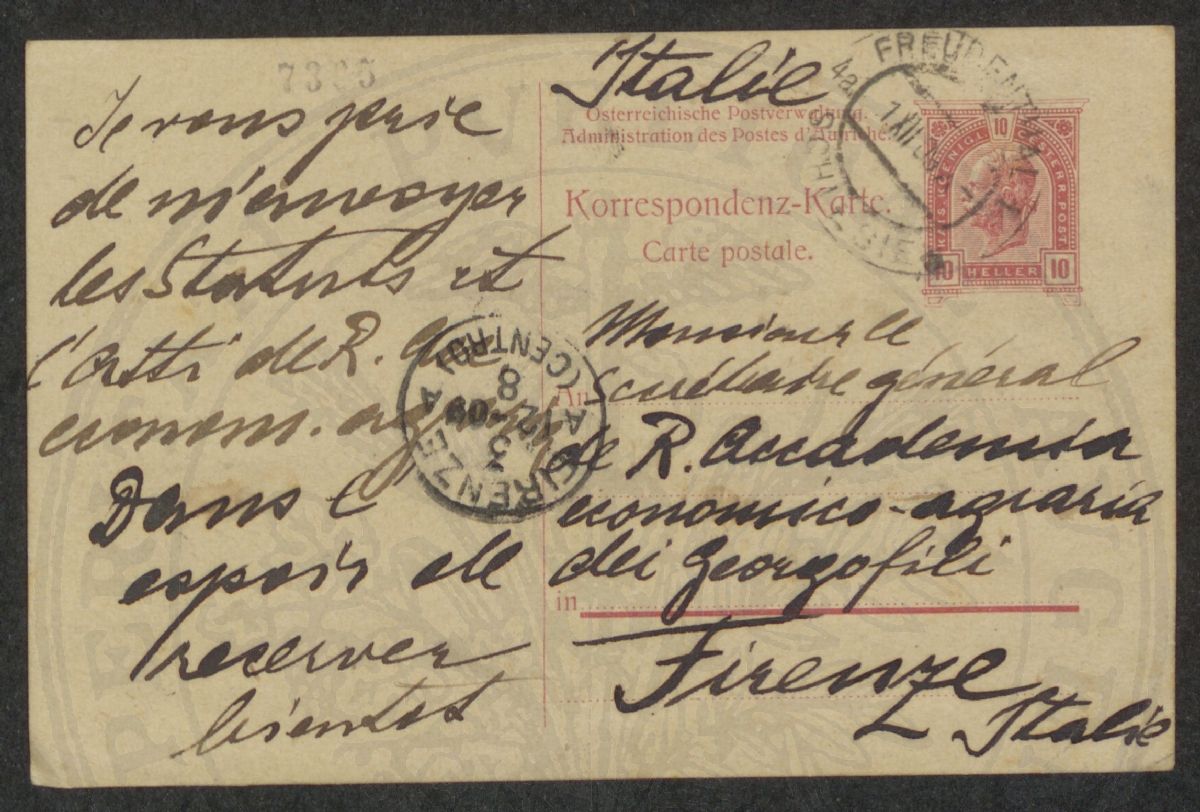 7365
Je vous prie
de m'envoyer
les Statuts et
l'Atti de R. Acc
econom. agrari
Dans l'
espoir de
recerver
bientot
Italie
Österreichische Postverwaltung.
Administration des Postes d'Autriche.
Korrespondenz-Karte.
Carte postale.
KAIS. KOENIGL. ÖSTERR. POST
10
10 HELLER 10
FREUDENTHAL
1 XII 09
FIRENZE
(CENTRO)
3 12 09
8
Monsieur le
An Scurétaire général
de R. Accademia
economico-agraria
dei Georgofili
in
Firenze
Italie